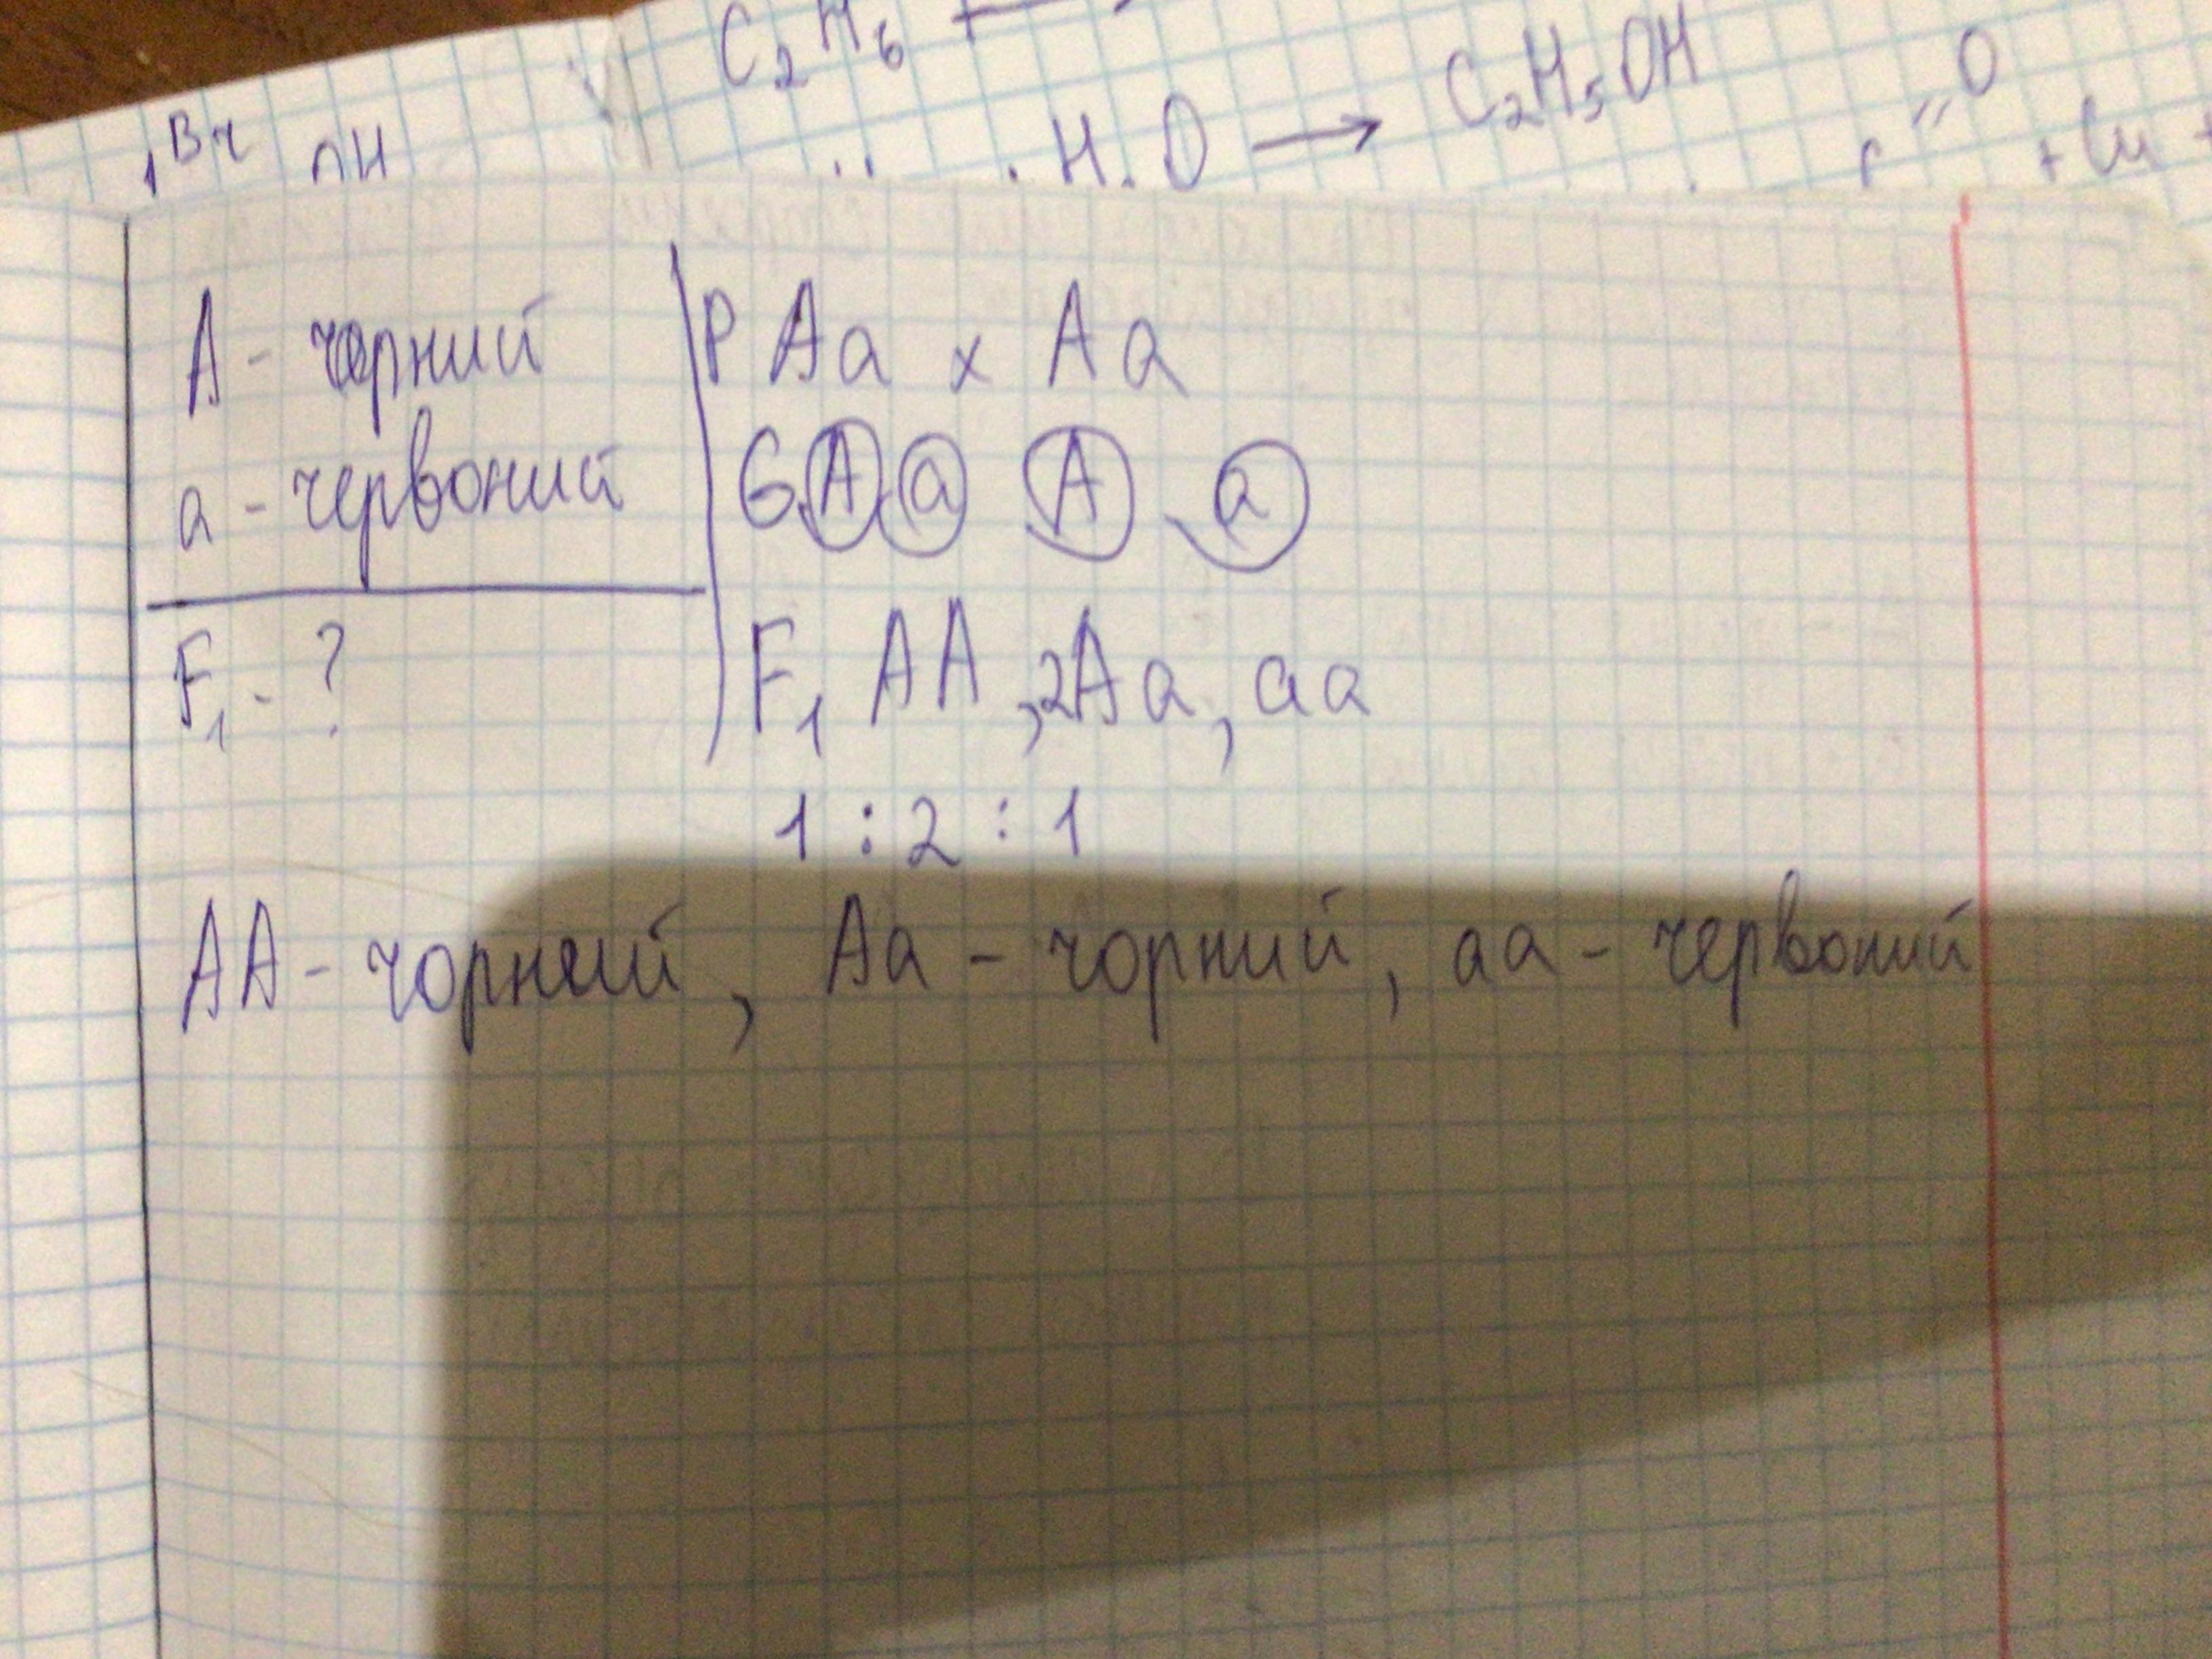 C₂H₆ +
Br пн
H₂O → C₂H₅OH
O
+ Cu +
A - чорний
a - червоний
F₁ - ?
P Aa x Aa
G A a A a
F₁ AA, 2Aa, aa
1 : 2 : 1
AA - чорний, Aa - чорний, aa - червоний